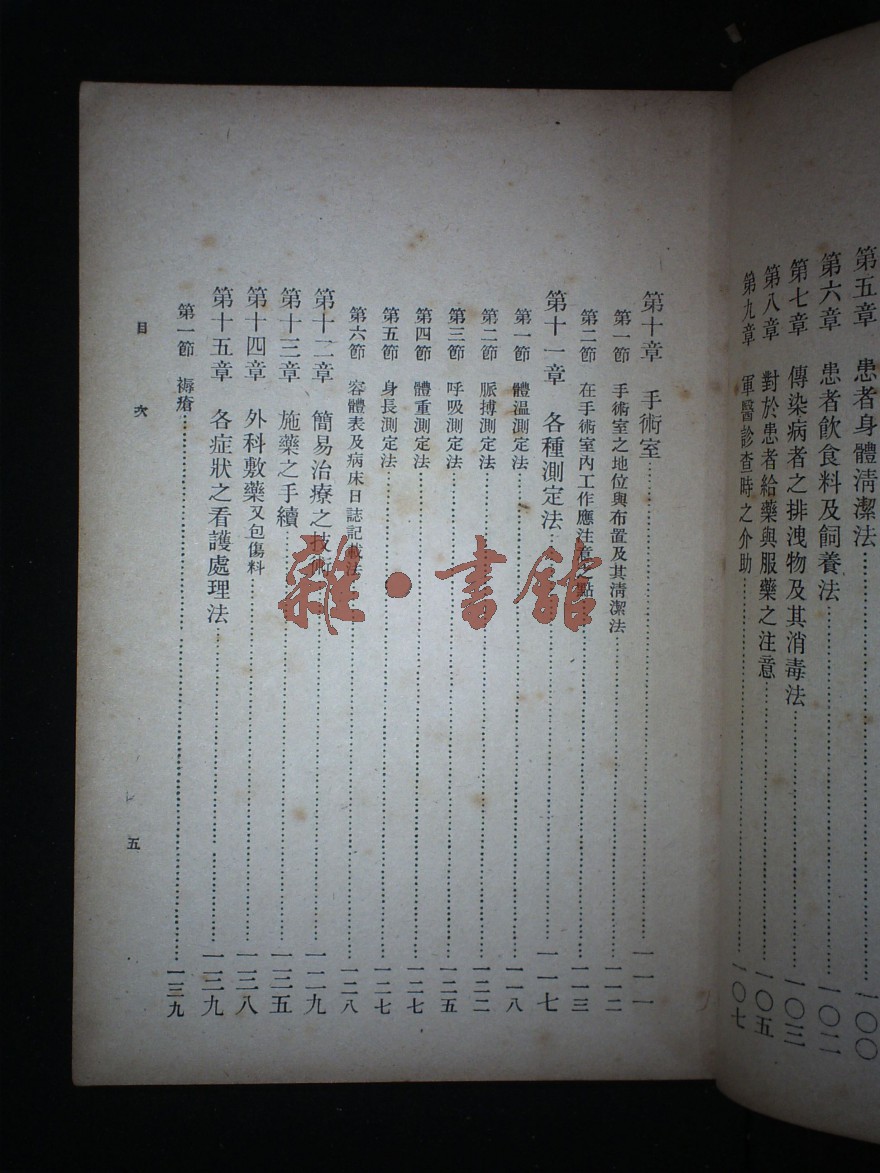 第五章　患者身體淸潔法……一〇〇
第六章　患者飮食料及飼養法……一〇二
第七章　傳染病者之排洩物及其消毒法……一〇三
第八章　對於患者給藥與服藥之注意……一〇五
第九章　軍醫診查時之介助……一〇七
第十章　手術室……一一一
第一節　手術室之地位與布置及其淸潔法……一一二
第二節　在手術室內工作應注意之點……一一三
第十一章　各種測定法……一一七
第一節　體温測定法……一一八
第二節　脈搏測定法……一二二
第三節　呼吸測定法……一二五
第四節　體重測定法……一二七
第五節　身長測定法……一二七
第六節　容體表及病床日誌記載法……一二八
第十二章　簡易治療之技術……一二九
第十三章　施藥之手續……一三五
第十四章　外科敷藥又包傷料……一三八
第十五章　各症狀之看護處理法……一三九
第一節　褥瘡……一三九
目次
五
雜·書館